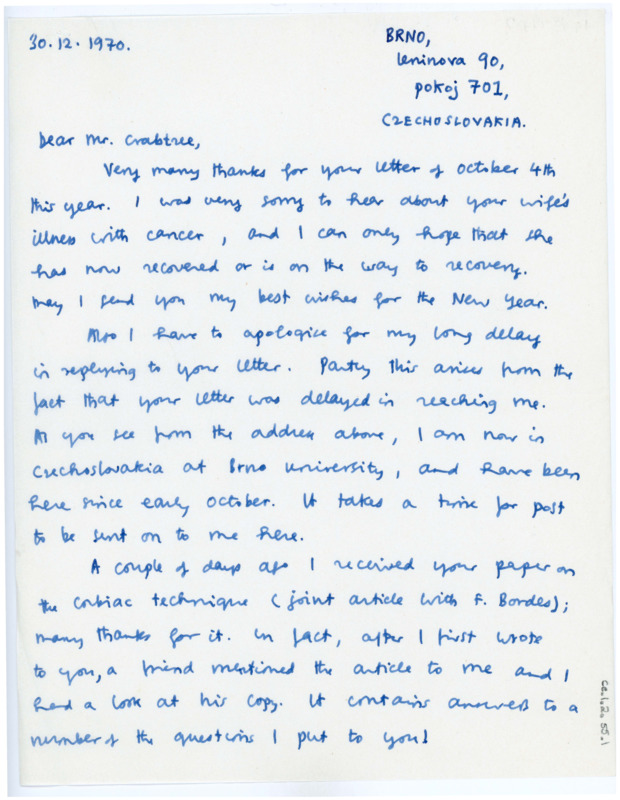 30.12.1970.
BRNO,
Leninova 90,
pokoj 701,
CZECHOSLOVAKIA.
Dear Mr. Crabtree,
Very many thanks for your letter of October 4th
this year. I was very sorry to hear about your wife's
illness with cancer, and I can only hope that she
has now recovered or is on the way to recovery.
May I send you my best wishes for the New Year.
Also I have to apologise for my long delay
in replying to your letter. Partly this arises from the
fact that your letter was delayed in reaching me.
As you see from the address above, I am now in
Czechoslovakia at Brno University, and have been
here since early October. It takes a time for post
to be sent on to me here.
A couple of days ago I received your paper on
the Corbiac technique (joint article with F. Bordes);
many thanks for it. In fact, after I first wrote
to you, a friend mentioned the article to me and I
had a look at his copy. It contains answers to a
number of the questions I put to you!